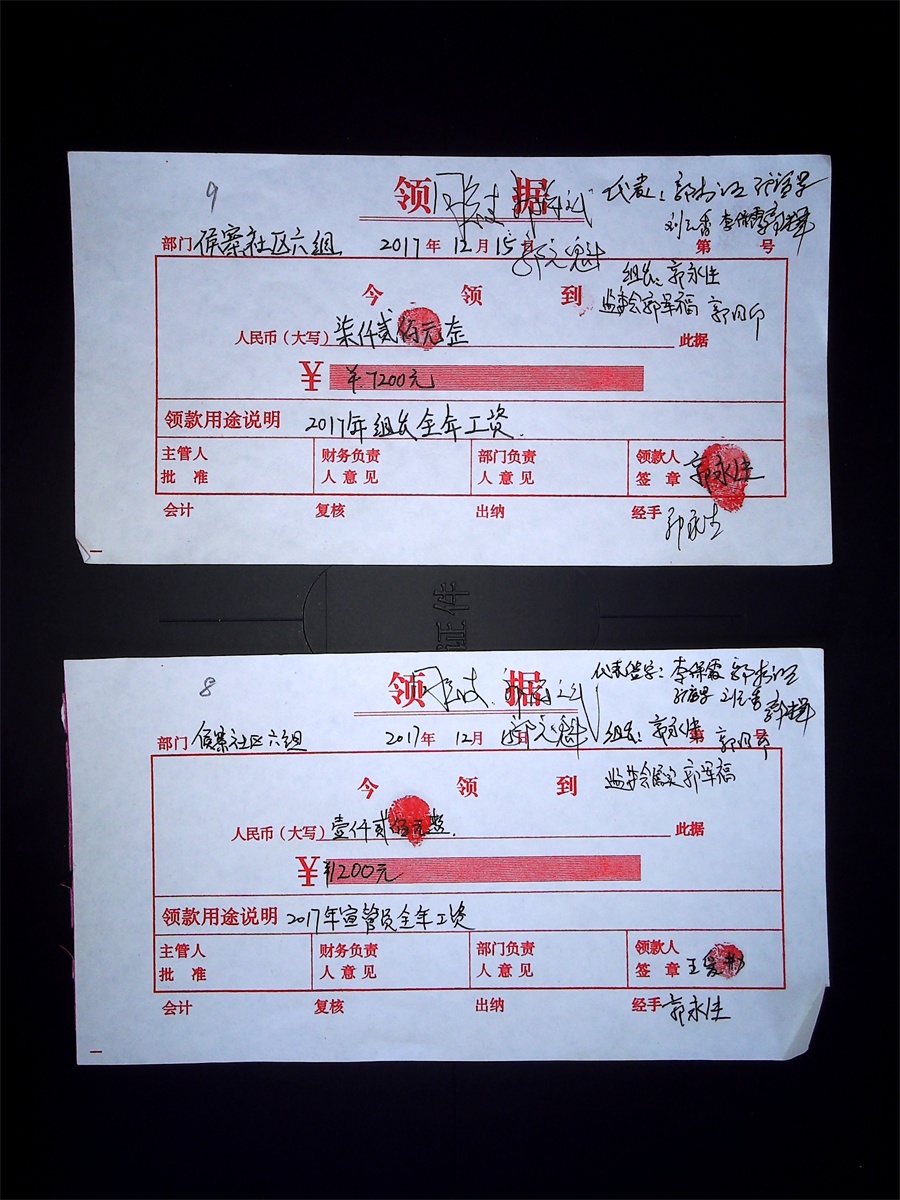 9
领 据
同意支
代表:
李保霞
部门 侯寨社区六组 2017年 12月 15日 第 号
郭文魁
组长:郭永生
今 领 到
监委会郭军福
人民币(大写)柒仟贰佰元正 此据
¥ 羊7200元
领款用途说明 2017年组长全年工资.
主管人 财务负责 部门负责 领款人
批 准 人意见 人意见 签 章 郭永生
会计 复核 出纳 经手 郭永生
证件
8
领 据
同意支
代表签字:李保霞
部门 侯寨社区六组 2017年 12月 15日 第 号
郭文魁
组长:郭永生
今 领 到
监委会 郭军福
人民币(大写)壹仟贰佰元整. 此据
¥ 1200元
领款用途说明 2017年宣管员全年工资
主管人 财务负责 部门负责 领款人
批 准 人意见 人意见 签 章
会计 复核 出纳 经手 郭永生